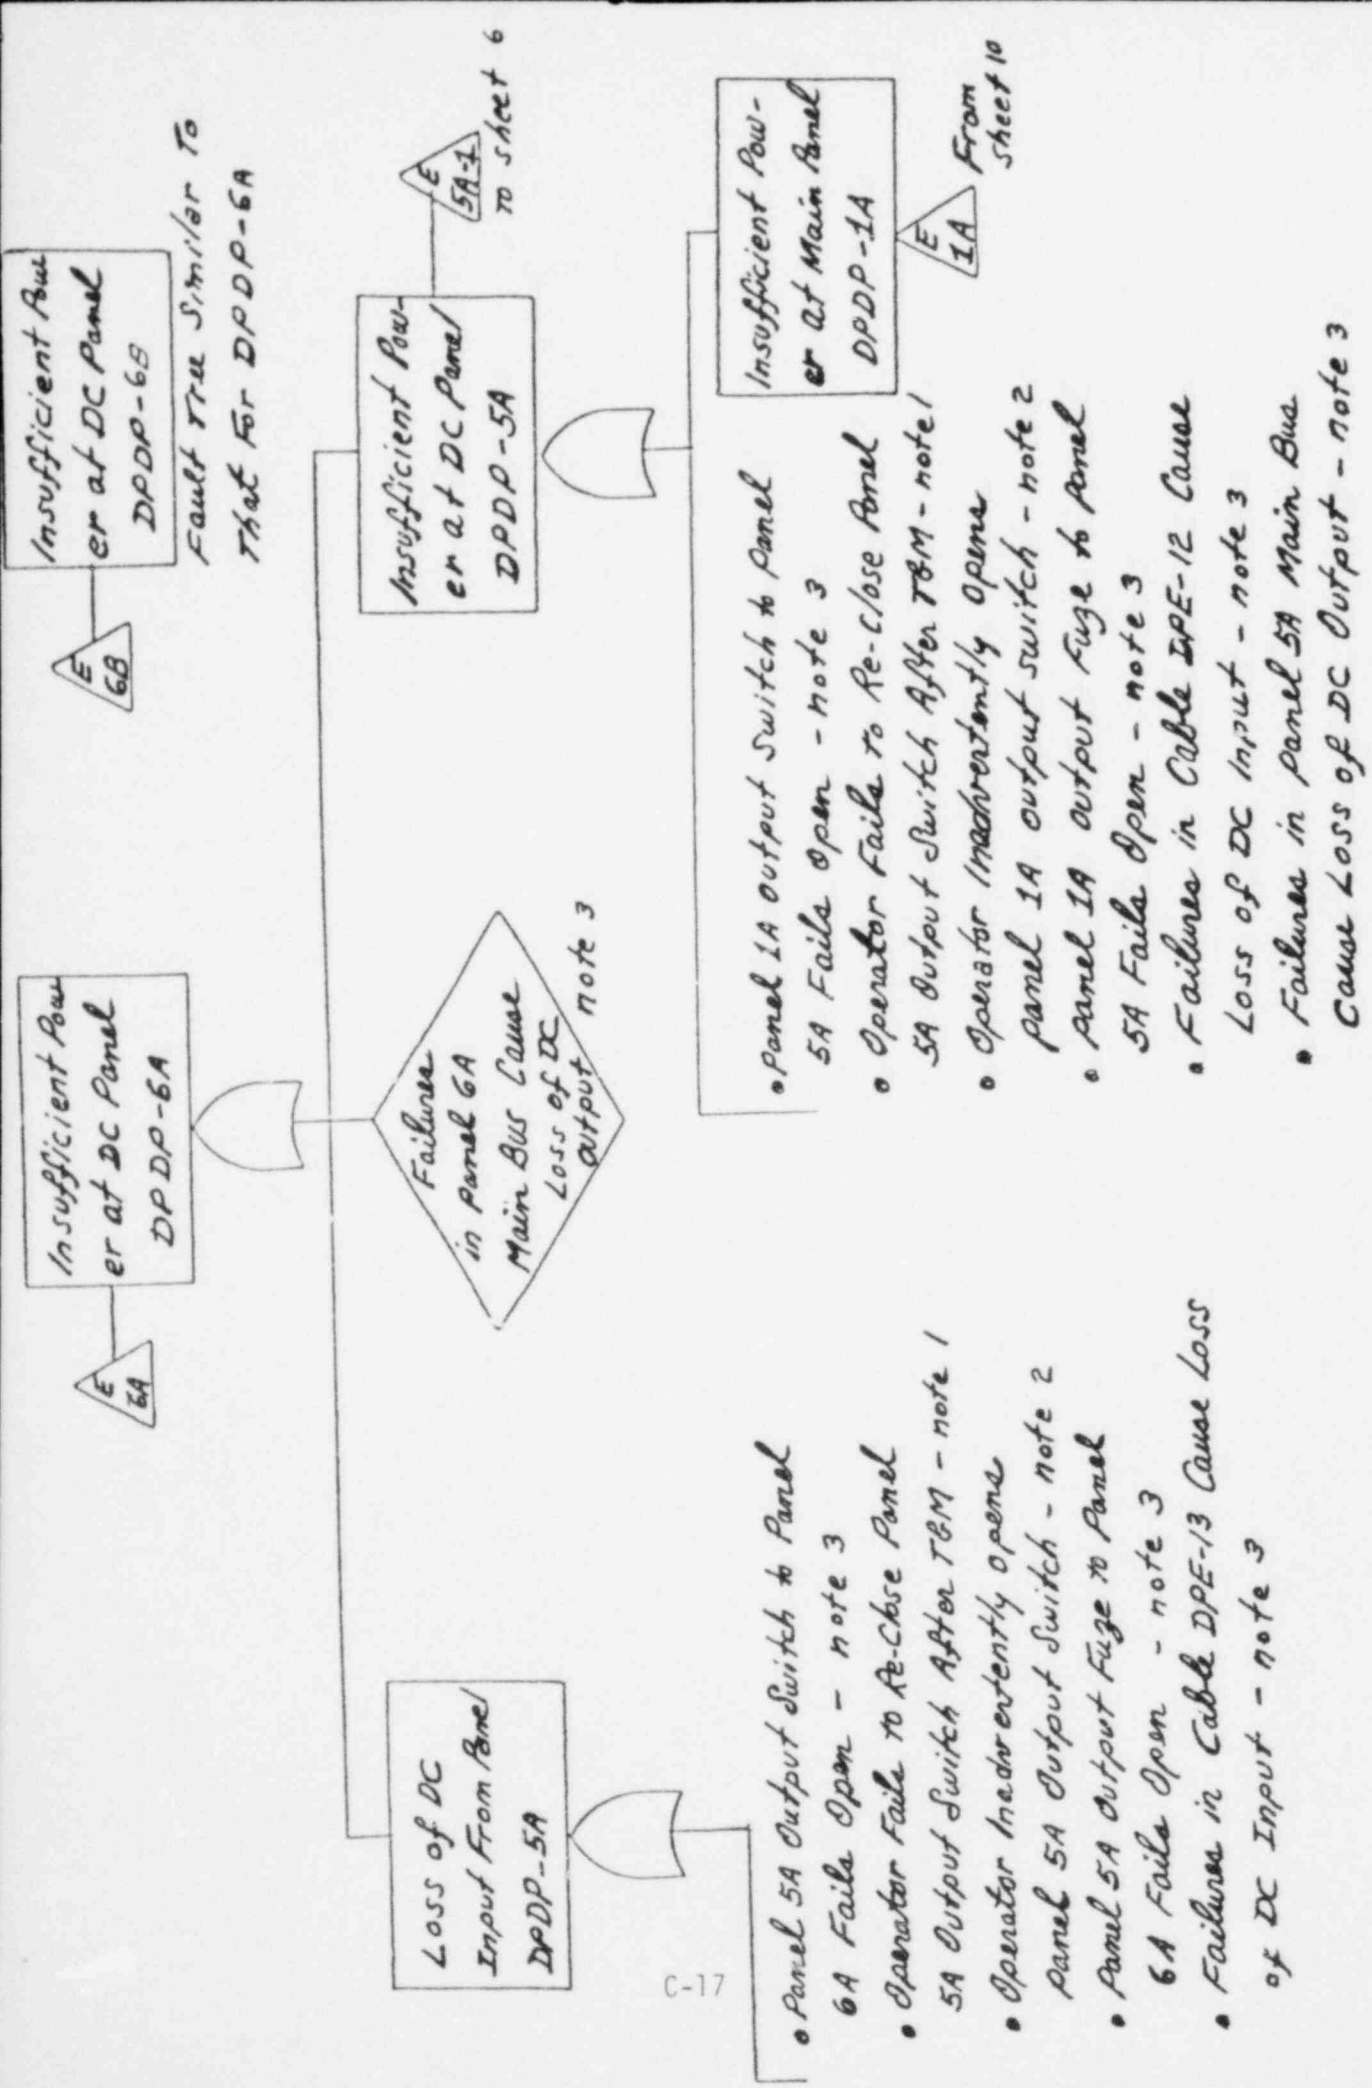 E
6A
Insufficient Pow
er at DC Panel
DPDP-6A
E
6B
Insufficient Pow
er at DC Panel
DPDP-6B
Fault Tree Similar To
That For DPDP-6A
Loss of DC
Input From Panel
DPDP-5A
Failures
in Panel 6A
Main Bus Cause
Loss of DC
output
note 3
Insufficient Pow-
er at DC Panel
DPDP-5A
E
5A-1
To sheet 6
• Panel 5A Output Switch to Panel
6A Fails Open - note 3
• Operator Fails to Re-Close Panel
5A Output Switch After T&M - note 1
• Operator Inadvertently opens
Panel 5A Output Switch - note 2
• Panel 5A Output Fuze to Panel
6A Fails Open - note 3
• Failures in Cable DPE-13 Cause Loss
of DC Input - note 3
Insufficient Pow-
er at Main Panel
DPDP-1A
E
1A
From
sheet 10
• Panel 1A Output Switch to Panel
5A Fails Open - note 3
• Operator Fails to Re-Close Panel
5A Output Switch After T&M - note 1
• Operator Inadvertently Opens
Panel 1A output switch - note 2
• Panel 1A output Fuze to Panel
5A Fails Open - note 3
• Failures in Cable DPE-12 Cause
Loss of DC Input - note 3
• Failures in Panel 5A Main Bus
Cause Loss of DC Output - note 3
C-17